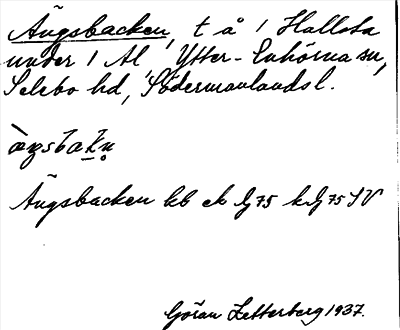 Ängsbacken, t å 1 Hallsta
under 1 Al Ytter-Enhörna sn,
Selebo hd, Södermanlandsl.
Ängsbacken kb ek Jg 75
Göran Zetterberg 1937.